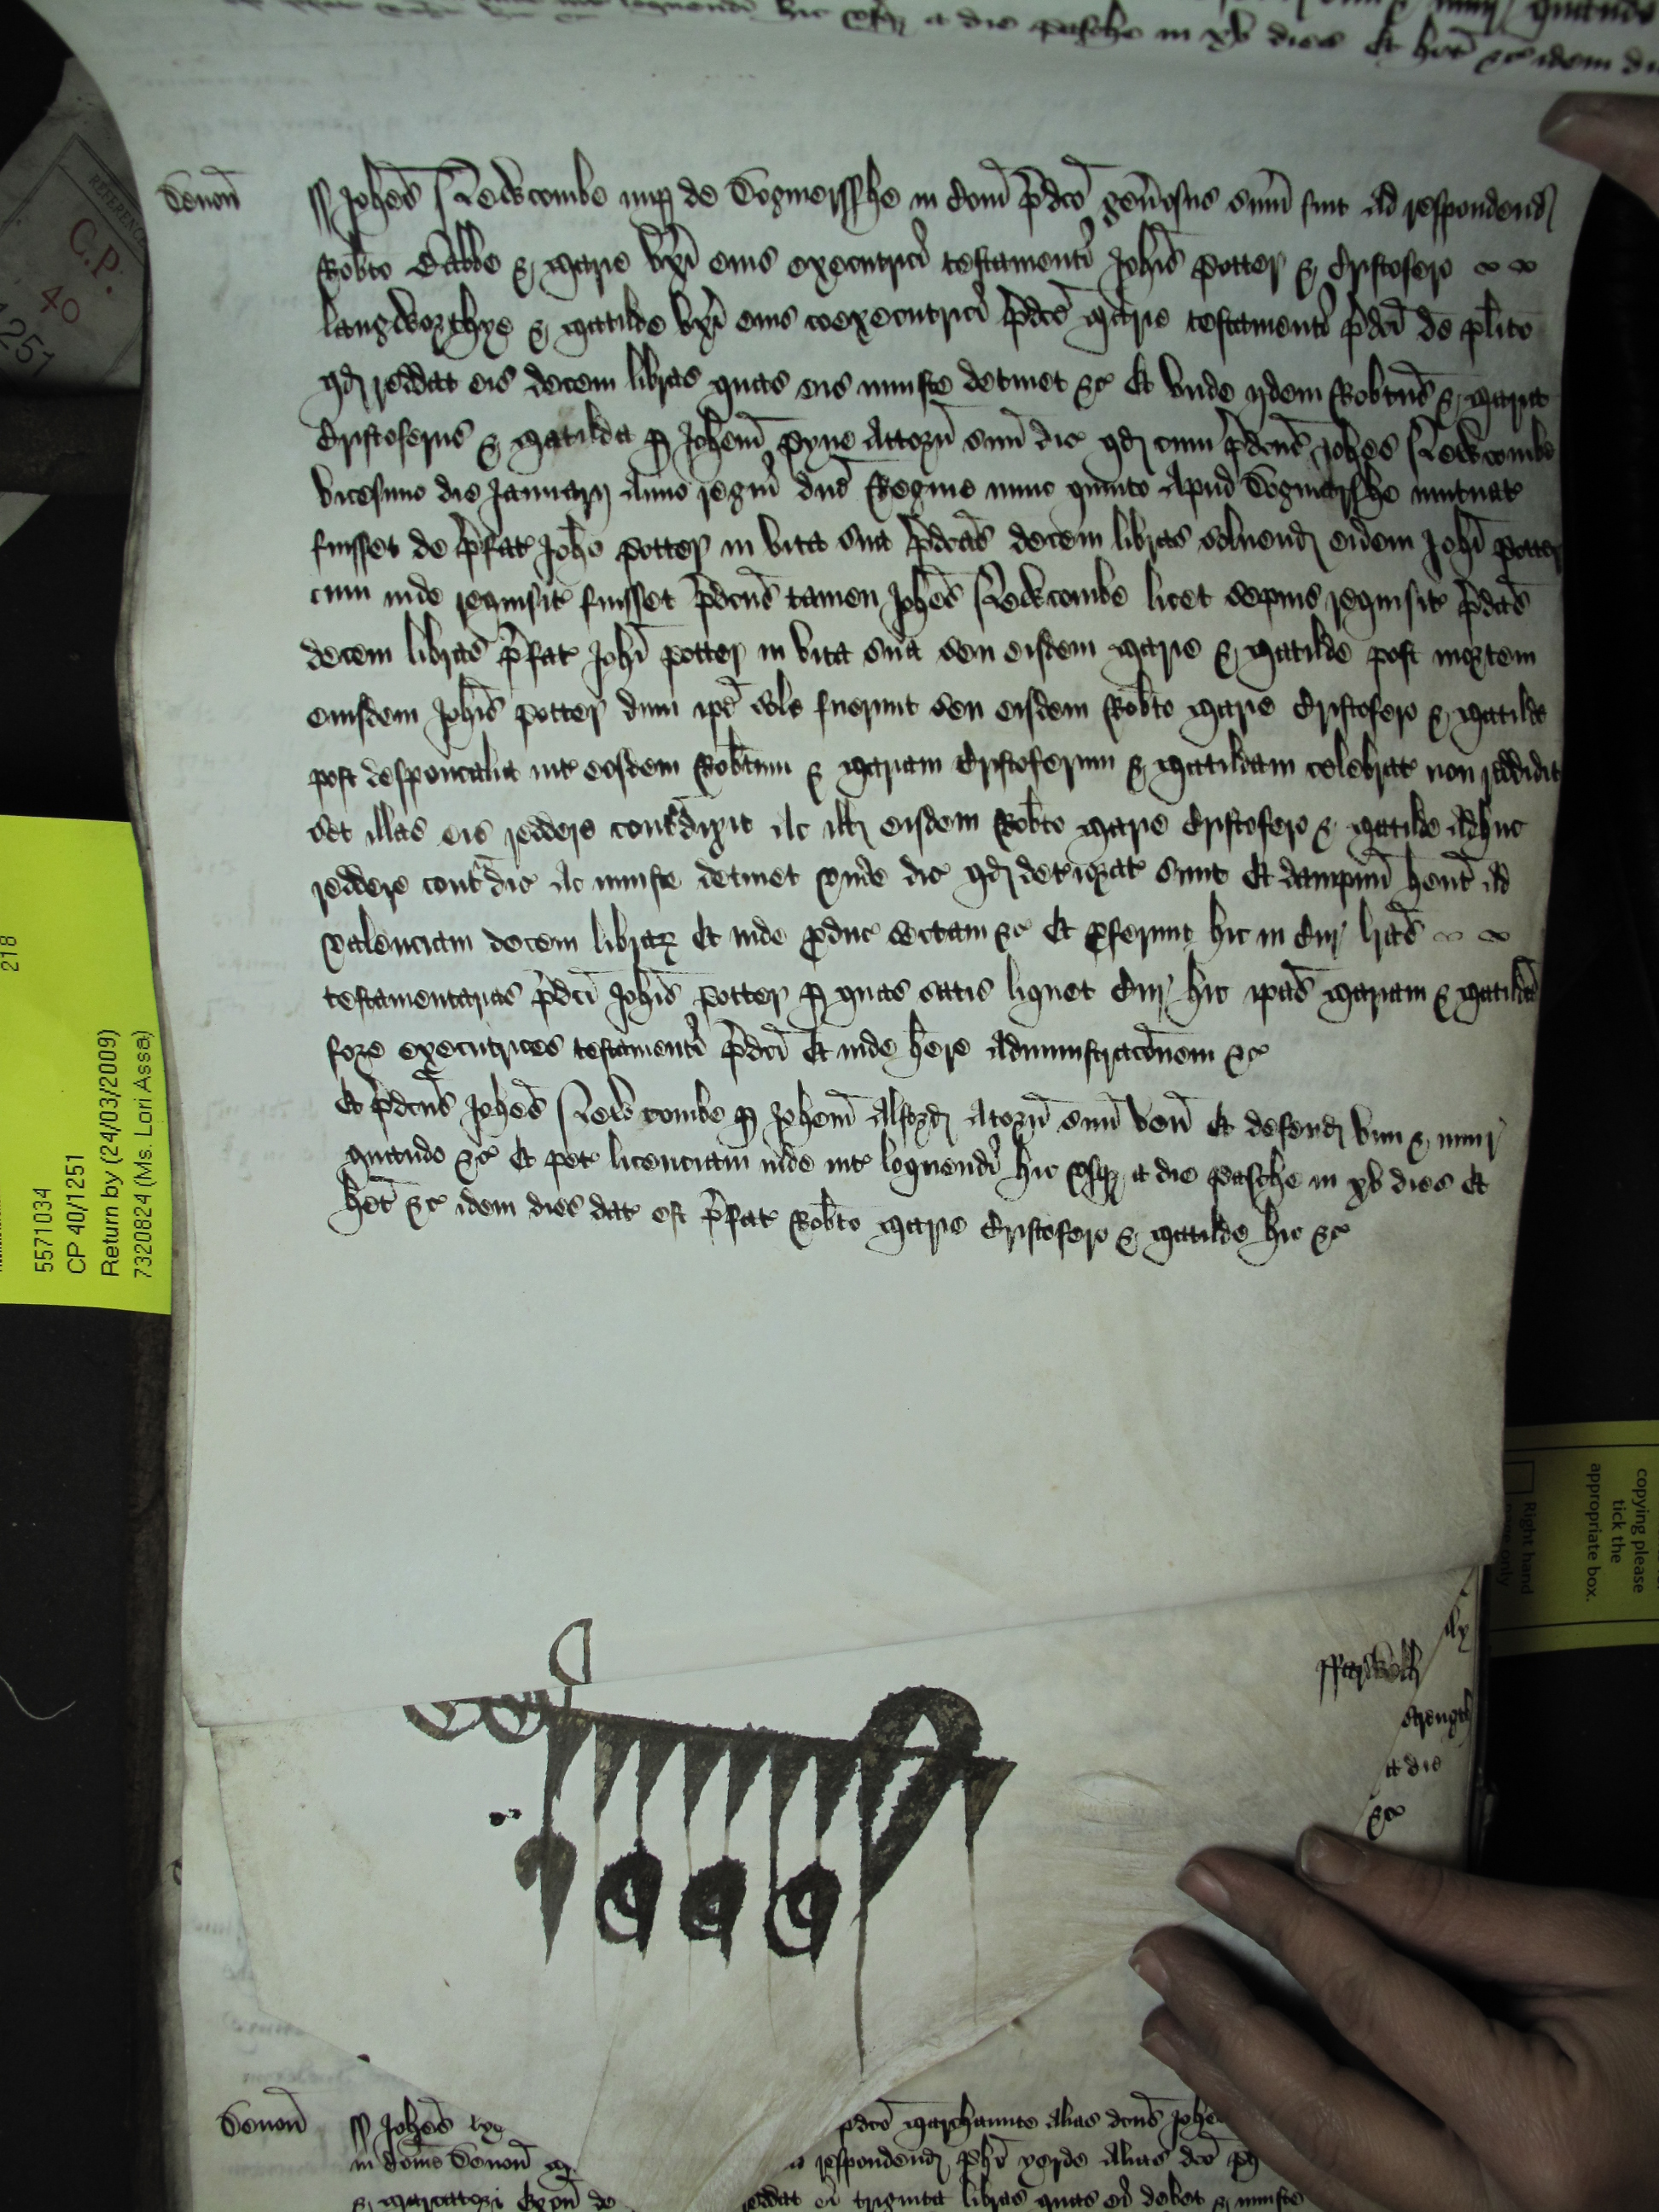 hic usqȝ a die pasche in xv dies Et het̄ &c idem di
Devoń
Joh̄es Newcombe nup de Dogmersshe in Com̄ p̄dco gen̄osus sum̄ fuit ad respondend
Rob̄to Cabbe & Marie ux̄i eius executrici testamenti Joh̄is Potter & Cristofero
Langworthye & Matilde ux̄i eius coexecutrici p̄dc̄e Marie testamenti p̄dc̄i de pl̄ito
qd reddat eis decem libras quas eis iniuste detinet &c Et unde ijdem Rob̄tus & Maria
Cristoferus & Matilda p Joh̄em Pyne Attorn̄ suum dic̄ qd cum p̄dc̄us Joh̄es Newcombe
vicesimo die Januarij Anno regni dn̄e Regine nunc quinto Apud Dogmarshe mutuat
fuisset de p̄fat Joh̄e Potter in vita sua p̄dc̄as decem libras solvend eidem Joh̄i Potter
cum inde requisit fuisset p̄dc̄us tamen Joh̄es Newcombe licet sepius requisit p̄dc̄as
decem libras p̄fat Joh̄i Potter in vita sua seu eisdem Marie & Matilde post mortem
eiusdem Joh̄is Potter dum ip̄e sole fuerunt seu eisdem Rob̄to Marie Cristofero & Matilde
post desponsalia int eosdem Rob̄tum & Mariam Cristoferum & Matildam celebrat non reddidit
set illas eis reddere contradixit ac ill eisdem Rob̄to Marie Cristofero & Matilde adhuc
reddere contradic̄ ac iniuste detinet unde dic̄ qd deteriorat sunt Et dampnū hent ad
valenciam decem librar Et inde produc̄ sectam &c Et p̄ferunt hic in Cur l̄ras
testamentarias p̄dc̄i Joh̄is Potter p quas satis liquet Cur hic ip̄as Mariam & Matildā
fore executrices testamenti p̄dc̄i Et inde h̄ere Administrac̄onem &c
Et p̄dc̄us Joh̄es Newcombe p Joh̄em Alford Atorn̄ suum ven̄ Et defend vim & iniur
quando &c Et pet licenciam inde int loquendi hic usqȝ a die Pasche in xv dies Et
het̄ &c idem dies dat est p̄fat Rob̄to Marie Cristofero & Matilde hic &c
a die
&c
Devoń
Joh̄es
p̄dc̄o Marchaunte Alias dc̄us Joh̄e
in Com̄ Devoń
respondend Ph̄i
triginta libras quas ei debet & iniuste
REFERENCE
C.P.
40
1251
218
5571034
CP 40/1251
Return by (24/03/2009)
7320824 (Ms. Lori Assa)
copying please
tick the
appropriate box.
Right hand
only